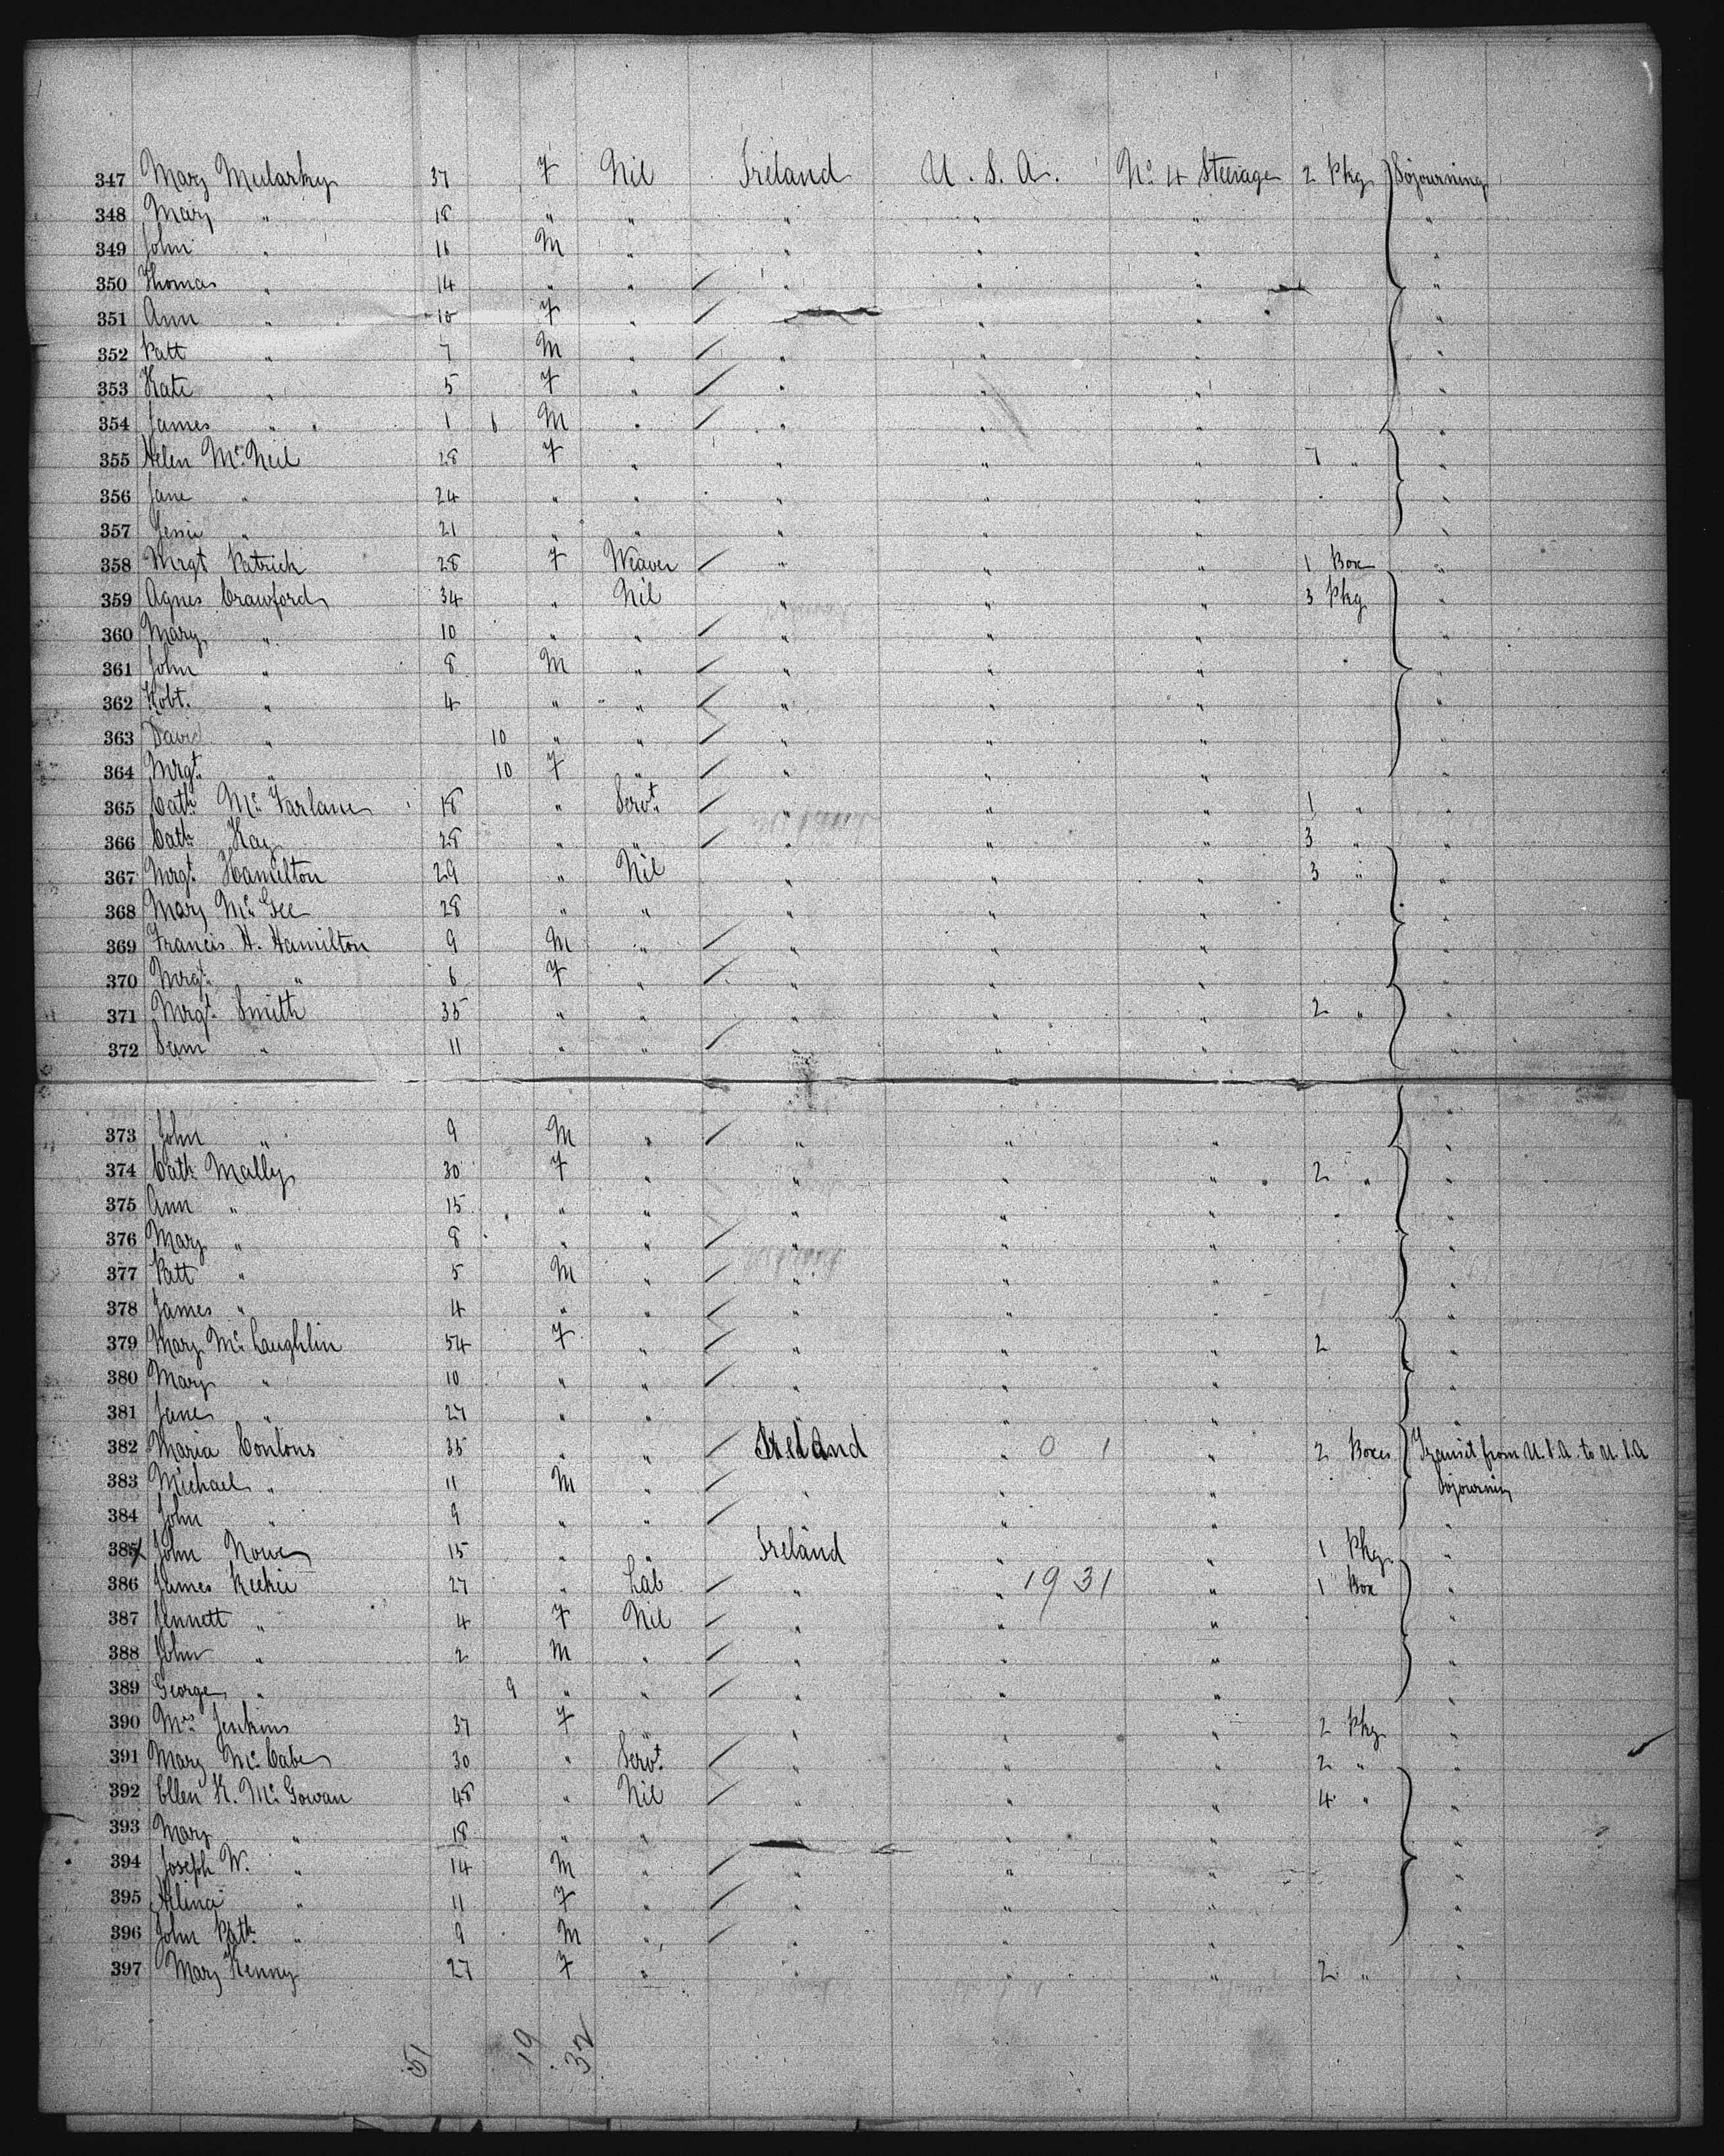 347 Mary Mularky 37 F Nil Ireland U. S. A. No 4 Steerage 2 Pkg Sojourning
348 Mary " 18 " " " " " "
349 John " 16 M " " " " "
350 Thomas " 14 " " " " " "
351 Ann " 10 F " " " "
352 Patt " 7 M " " " " "
353 Kate " 5 F " " " " "
354 James " 1 6 M " " " "
355 Helen Mc Neil 28 F " " " " 7 " "
356 Jane " 24 " " " " " "
357 Jessie " 21 " " " " " "
358 Mrgt Patrick 28 F Weaver " " " 1 Box "
359 Agnes Crawford 34 " Nil " " " 3 Pkg "
360 Mary " 10 " " " " " "
361 John " 8 M " " " "
362 Robt. " 4 " " " " " "
363 David " 10 " " " " "
364 Mrgt " 10 F " " " " "
365 Cath Mc Farlane 18 " Servt " " " 1 " "
366 Cath Kay 28 " " " " " 3 " "
367 Mrgt Hamilton 29 " Nil " " " 3 " "
368 Mary Mc Gee 28 " " " " " "
369 Francis H. Hamilton 9 M " " " " "
370 Mrgt " 6 F " " " "
371 Mrgt Smith 35 " " " " " 2 " "
372 Sam " 11 " " " " " "
373 John " 9 M " " " " "
374 Cath Mally 30 F " " " " 2 " "
375 Ann " 15 " " " " " "
376 Mary " 8 " " " " " "
377 Patt " 5 M " " " " "
378 James " 4 " " " " " "
379 Mary Mc Laughlin 54 F " " " " 2 "
380 Mary " 10 " " " " " "
381 Jane " 27 " " " " " "
382 Maria Conlons 35 " " Ireland " 0 1 " 2 Boxes Transit from U.S.A. to U.S.A
383 Michael " 11 M " " " " Sojourning
384 John " 9 " " " " "
385 John 15 " " Ireland " " 1 Pkg "
386 James Keekie 27 " Lab " " 1931 " 1 Box "
387 Jennett " 4 F Nil " " " "
388 John " 2 M " " " " "
389 George " 9 " " " " " "
390 Mrs Jenkins 37 F " " " " 2 Pkg "
391 Mary Mc Cabe 30 " Servt " " " 2 " "
392 Ellen K. Mc Gowan 48 " Nil " " " 4 " "
393 Mary " 18 " " " " "
394 Joseph W. " 14 M " " " " "
395 " 11 F " " " " "
396 John Patk " 9 M " " " " "
397 Mary Kenny 27 F " " " " 2 " "
51 19 32